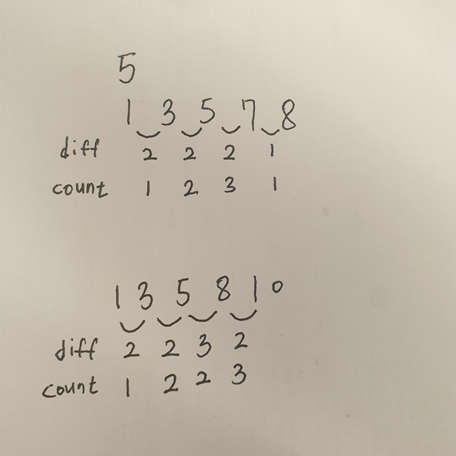 5
1 3 5 7 8
diff 2 2 2 1
count 1 2 3 1
1 3 5 8 10
diff 2 2 3 2
count 1 2 2 3